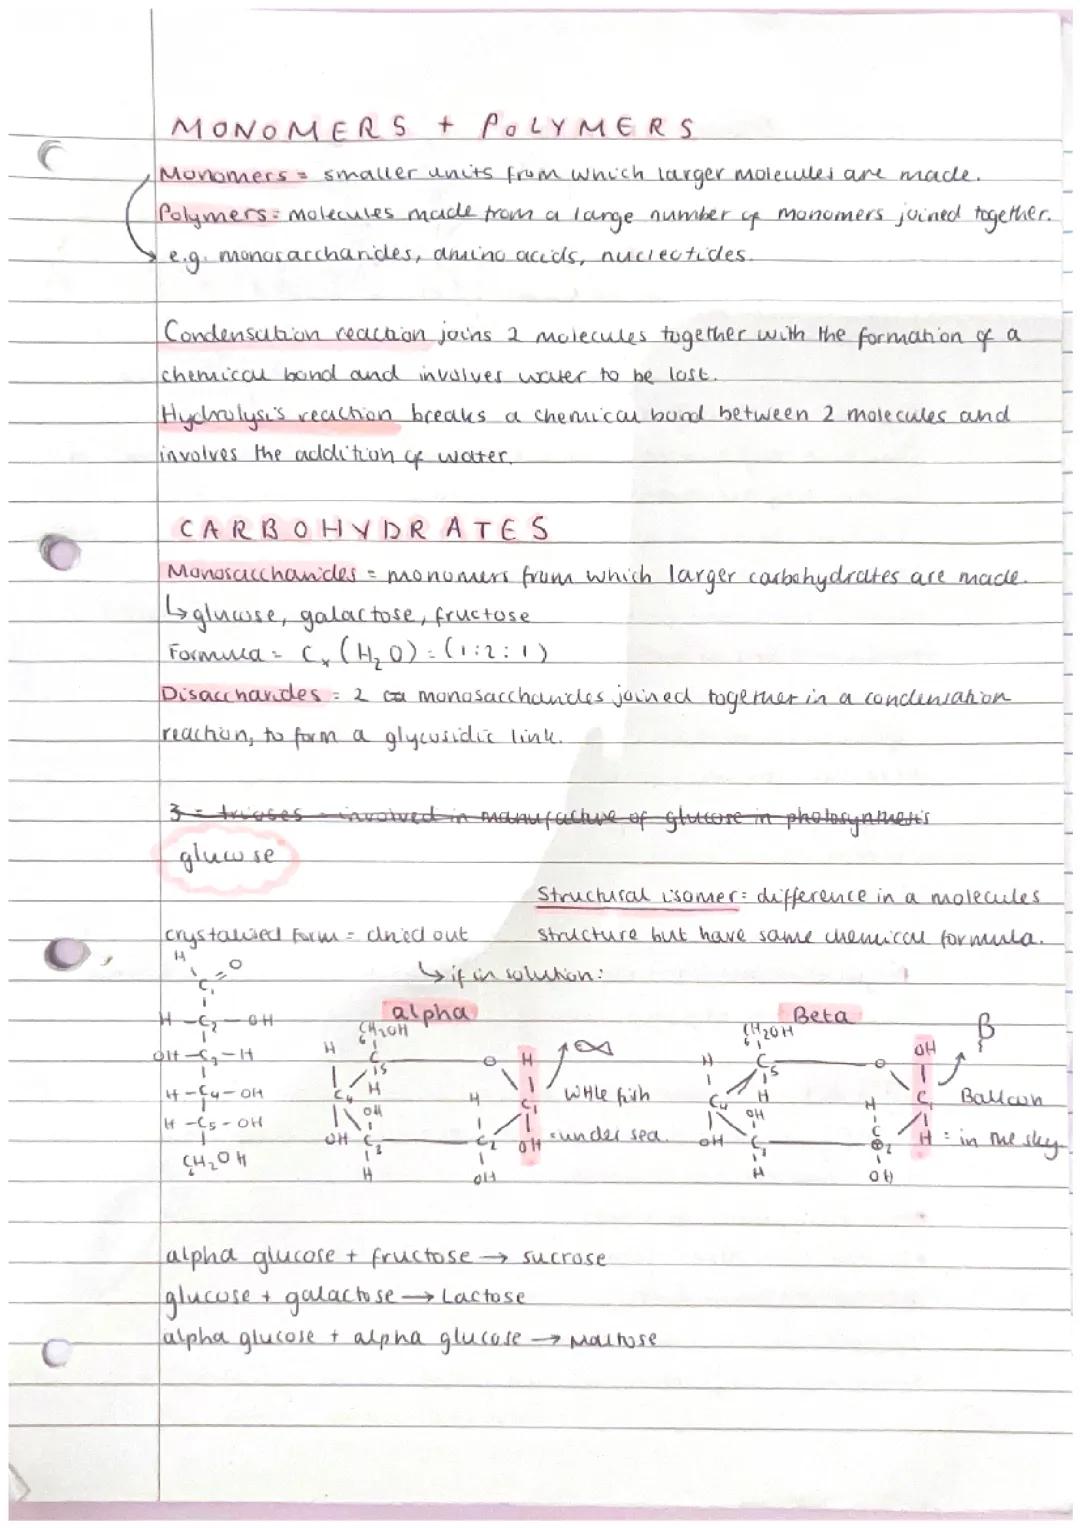 MONOMERS + POLYMERS
Monomers = smaller units from which larger molecules are made.
Polymers = molecules made from a large number of monomers joined together.
e.g. monosaccharides, amino acids, nucleotides.
Condensation reaction joins 2 molecules together with the formation of a
chemical bond and involves water to be lost.
Hydrolysis reaction breaks a chemical bond between 2 molecules and
involves the addition of water.
CARBOHYDRATES
Monosaccharides = monomers from which larger carbohydrates are made.
↳ glucose, galactose, fructose
Formula = Cx (H2O) = (1:2:1)
Disaccharides = 2 monosaccharides joined together in a condensation
reaction, to form a glycosidic link.
3 = trioses - involved in manufacture of glucose in photosynthesis
glucose
Structural isomer = difference in a molecules
crystalised form = dried out
structure but have same chemical formula.
↳ if in solution:
alpha
Beta
H
C1 = O
H - C2 - OH
OH - C3 - H
H - C4 - OH
H - C5 - OH
CH2OH
6
CH2OH
6
H C5 O H
C4 H C1
OH
OH C3 C2 OH
H
H OH
little fish
= under sea.
CH2OH
6
H C5 O OH
C4 H C1
OH
OH C3 C2 H
H
H OH
β
Balloon
= in the sky
alpha glucose + fructose → sucrose
glucose + galactose → Lactose
alpha glucose + alpha glucose → Maltose